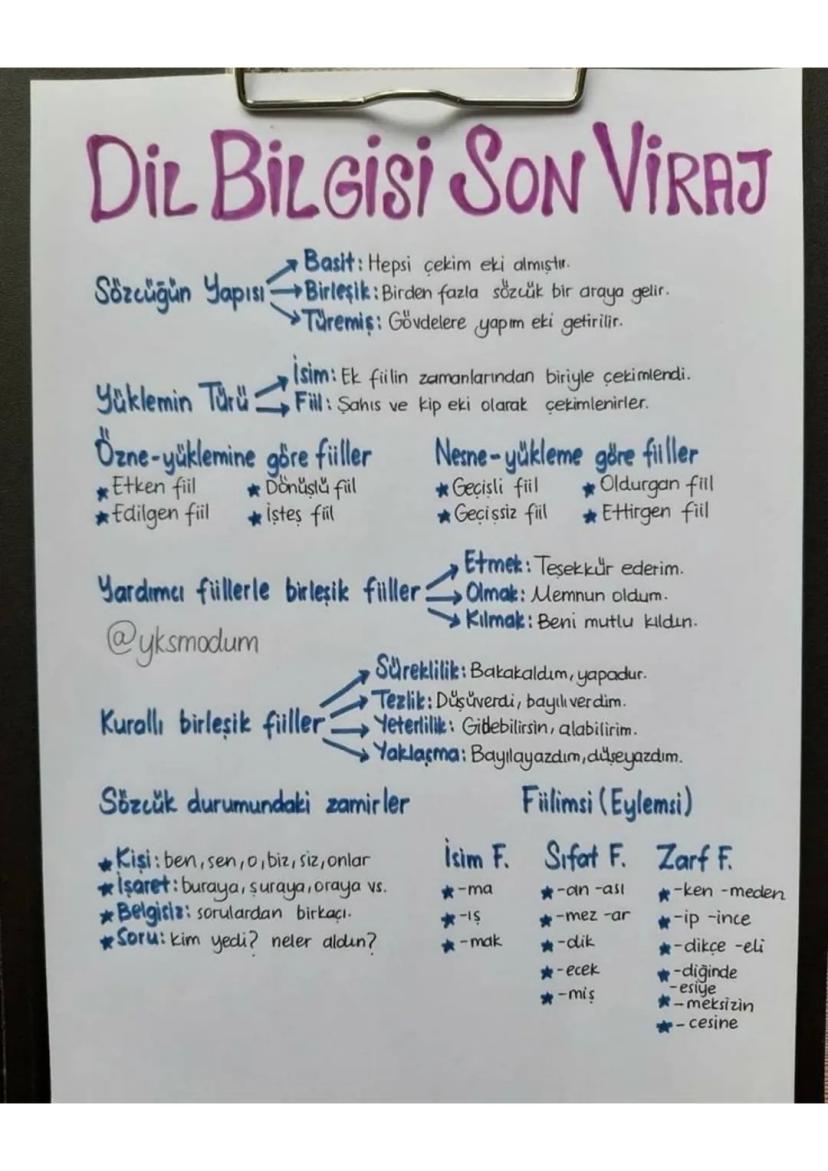 DİL BİLGİSİ SON VİRAJ
Sözcüğün Yapısı
Basit: Hepsi çekim eki almıştır.
Birleşik: Birden fazla sözcük bir araya gelir.
Türemiş: Gövdelere yapım eki getirilir.
Yüklemin Türü
İsim: Ek fiilin zamanlarından biriyle çekimlendi.
Fiil: Şahıs ve kip eki olarak çekimlenirler.
Özne-yüklemine göre fiiller
★Etken fiil ★Dönüşlü fiil
★Edilgen fiil ★İşteş fiil
Nesne-yükleme göre fiiller
★Geçişli fiil ★Oldurgan fiil
★Geçissiz fiil ★Ettirgen fiil
Yardımcı fiillerle birleşik fiiller
Etmek: Teşekkür ederim.
Olmak: Memnun oldum.
Kılmak: Beni mutlu kıldın.
@yksmodum
Kurallı birleşik fiiller
Süreklilik: Bakakaldım, yapadur.
Tezlik: Düşüverdi, bayılıverdim.
Yeterlilik: Gidebilirsin, alabilirim.
Yaklaşma: Bayılayazdım, düşeyazdım.
Sözcük durumundaki zamirler
★Kişi: ben, sen, o, biz, siz, onlar
★İşaret: buraya, şuraya, oraya vs.
★Belgisiz: sorulardan birkaçı.
★Soru: kim yedi? neler aldın?
Fiilimsi (Eylemsi)
İsim F.
★-ma
★-ış
★-mak
Sıfat F.
★-an -ası
★-mez -ar
★-dik
★-ecek
★-miş
Zarf F.
★-ken -meden
★-ip -ince
★-dikçe -eli
★-diğinde
-esiye
★-meksizin
★-cesine